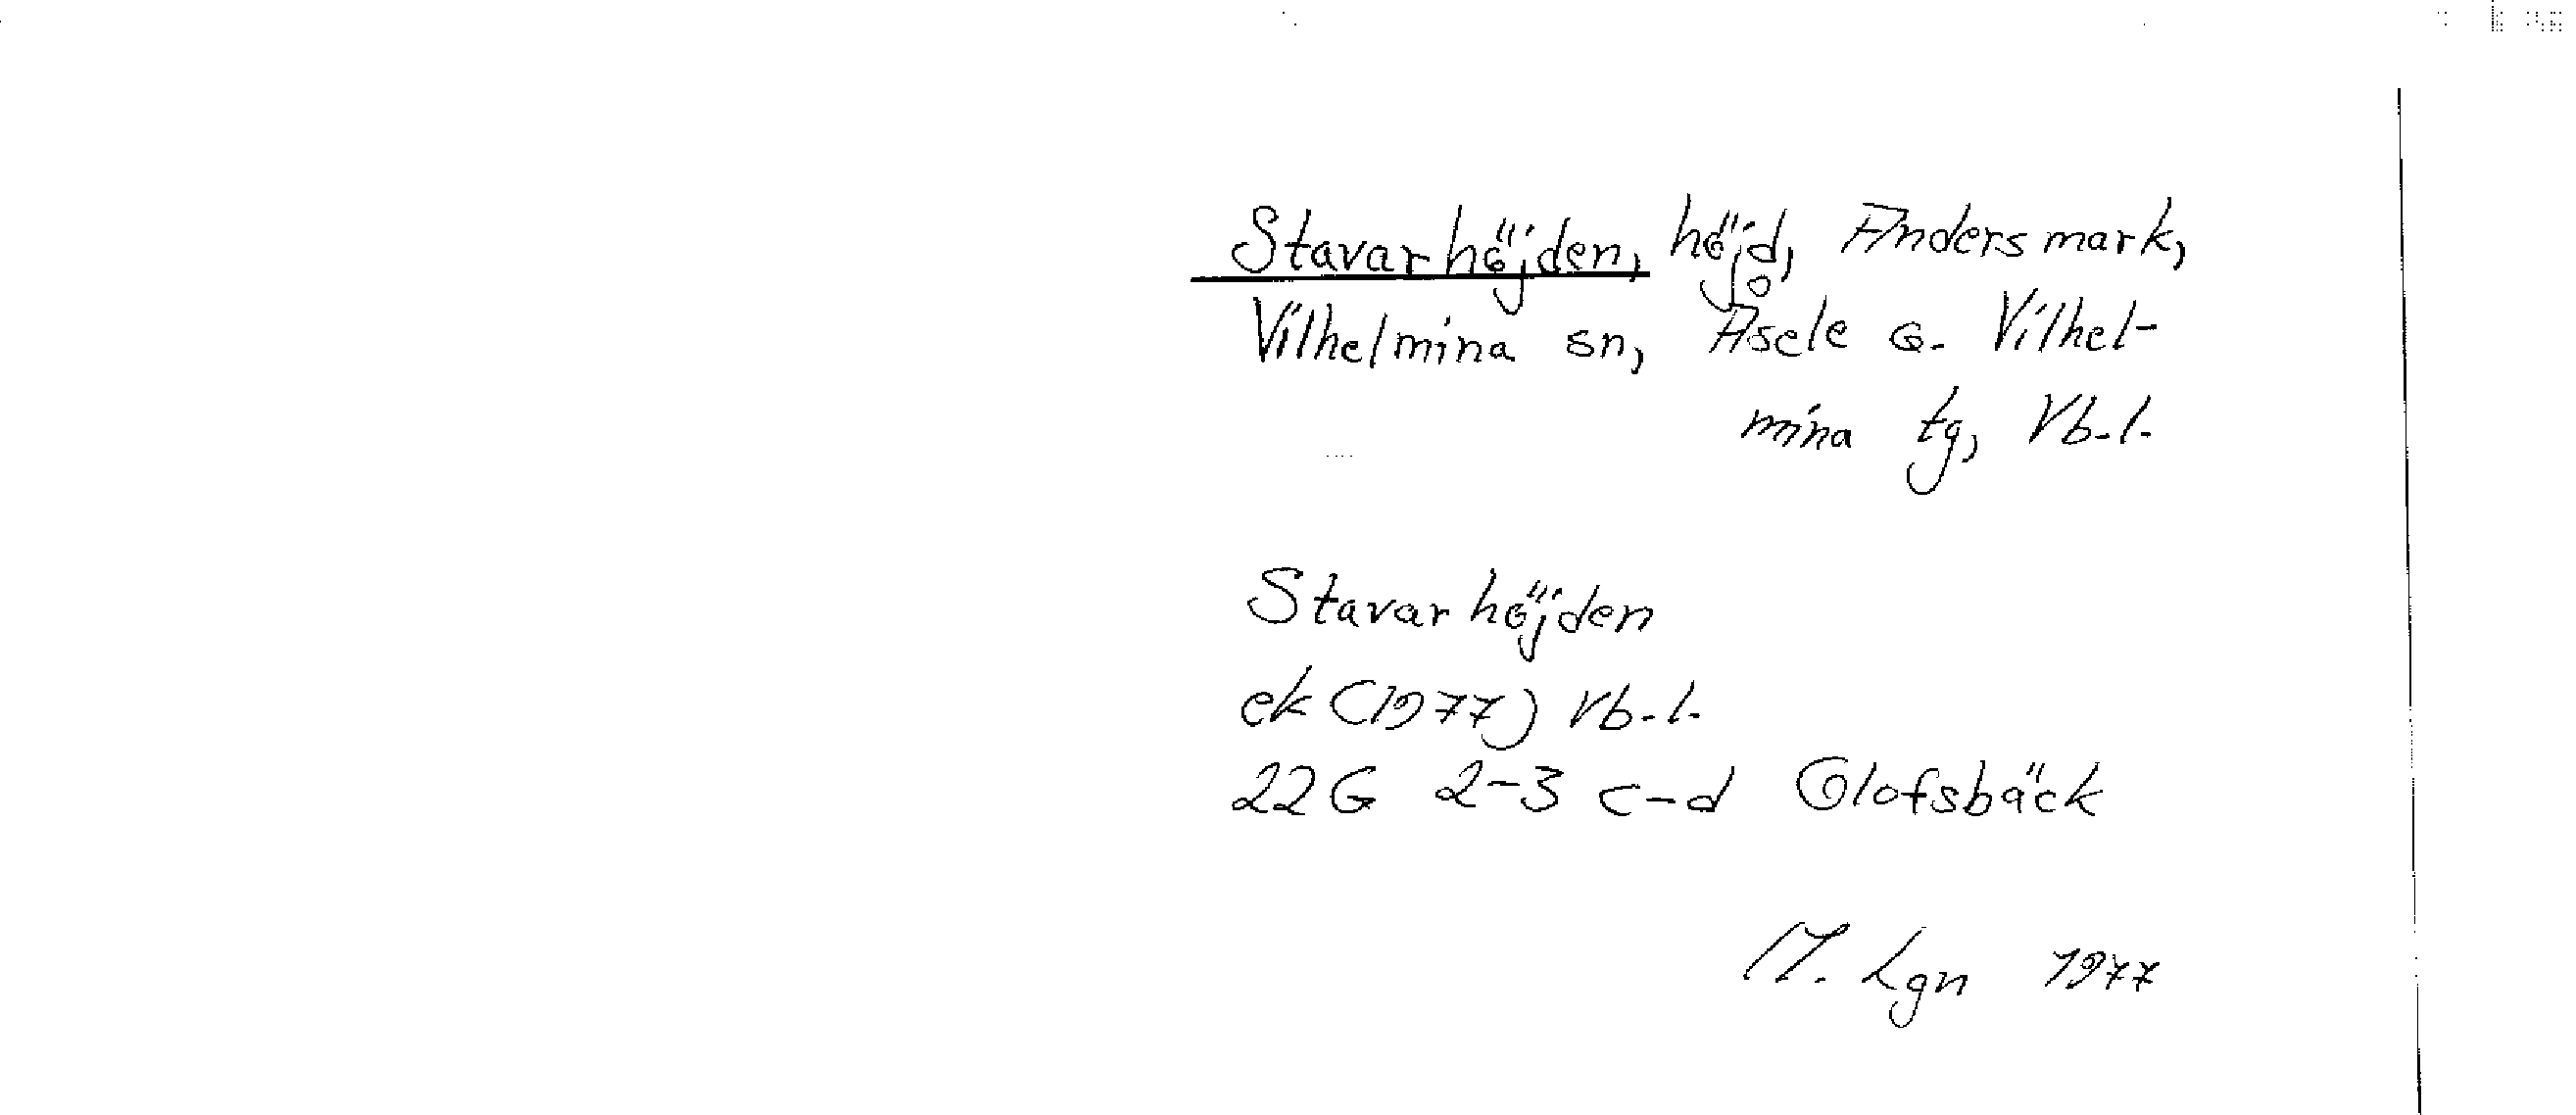 Stavarhöjden, höjd, Andersmark,
Vilhelmina sn, Åsele o. Vilhel-
mina tg, Vb. l.
Stavarhöjden
ek (1977) Vb. l.
22G 2-3 c-d Olofsbäck
M. Lgn 1977